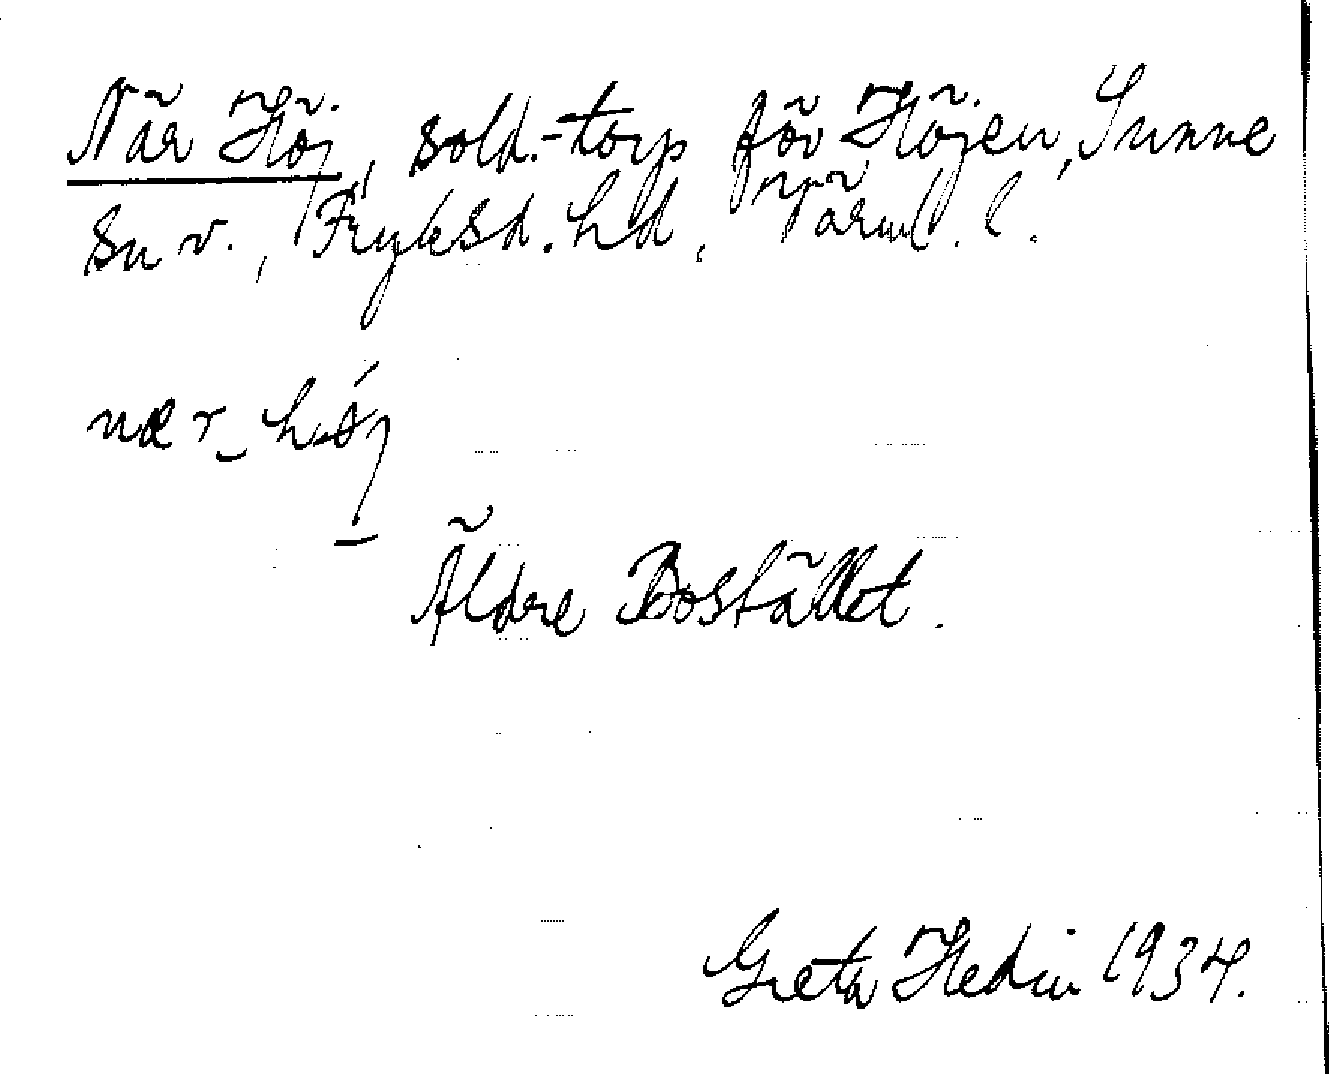 När Höj, sold.-torp för Höjen, Sunne
sn v., Fryksd. hd, Värml. l.
nær_hǿj
Äldre Bostället.
Greta Hedin 1934.